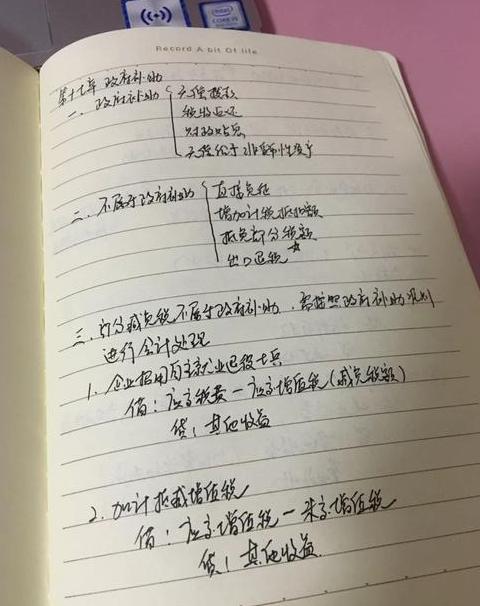 intel
CORE i5
Record A bit Of life
第十七章 政府补助
一、政府补助 无偿拨款
税收返还
财政贴息
无偿给予非货币性资产
二、不属于政府补助 直接免征
增加计税抵扣额
抵免部分税额
出口退税 ☆
三、部分减免税不属于政府补助,需按照政府补助准则
进行会计处理
1. 企业招用自主就业退役士兵
借:应交税费-应交增值税(减免税额)
贷:其他收益
2. 加计抵减增值税
借:应交增值税-未交增值税
贷:其他收益